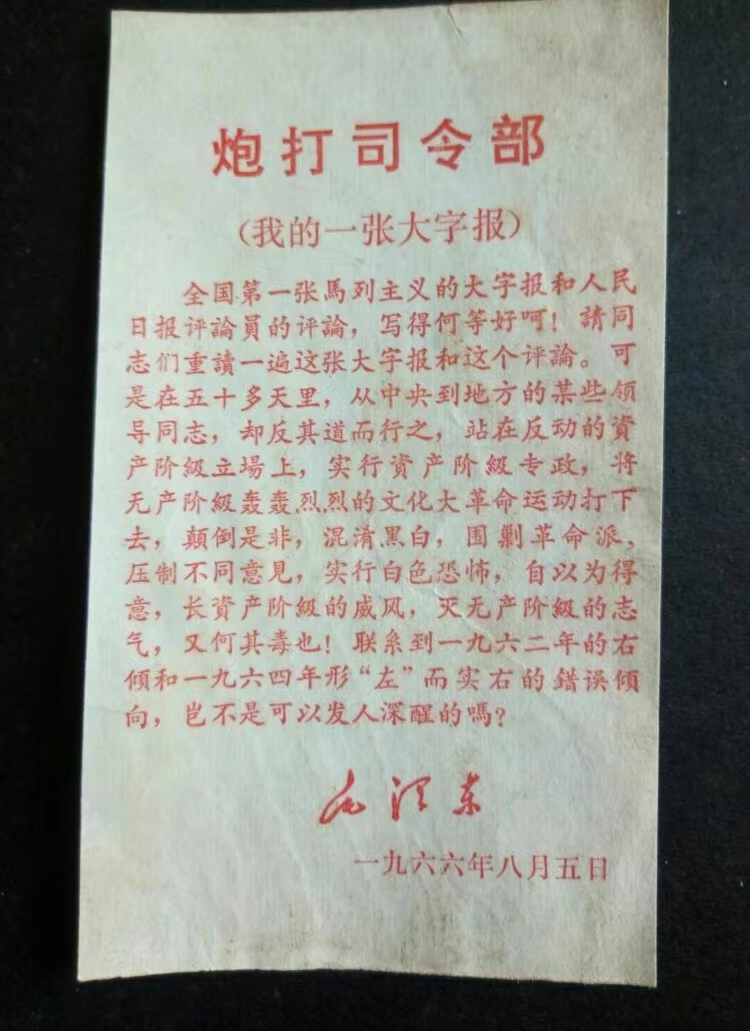 炮打司令部
（我的一张大字报）
全国第一张馬列主义的大字报和人民
日报评論員的评論，写得何等好呵！請同
志们重讀一遍这张大字报和这个评論。可
是在五十多天里，从中央到地方的某些领
导同志，却反其道而行之，站在反动的資
产阶級立場上，实行資产阶級专政，将
无产阶級轰轰烈烈的文化大革命运动打下
去，顛倒是非，混淆黑白，围剿革命派，
压制不同意見，实行白色恐怖，自以为得
意，长資产阶級的威风，灭无产阶級的志
气，又何其毒也！联系到一九六二年的右
倾和一九六四年形“左”而实右的錯误倾
向，岂不是可以发人深醒的嗎？
毛泽东
一九六六年八月五日